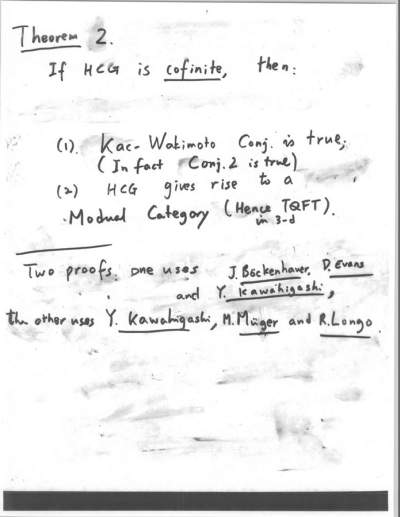 Theorem 2.
If HCG is cofinite, then:
(1). Kac-Wakimoto Conj. is true;
(In fact Conj. 2 is true)
(2) HCG gives rise to a
Modual Category (Hence TQFT).
in 3-d
Two proofs: one uses J. Böckenhauer, D. Evans
and Y. Kawahigashi,
the other uses Y. Kawahigashi, M. Müger and R. Longo.